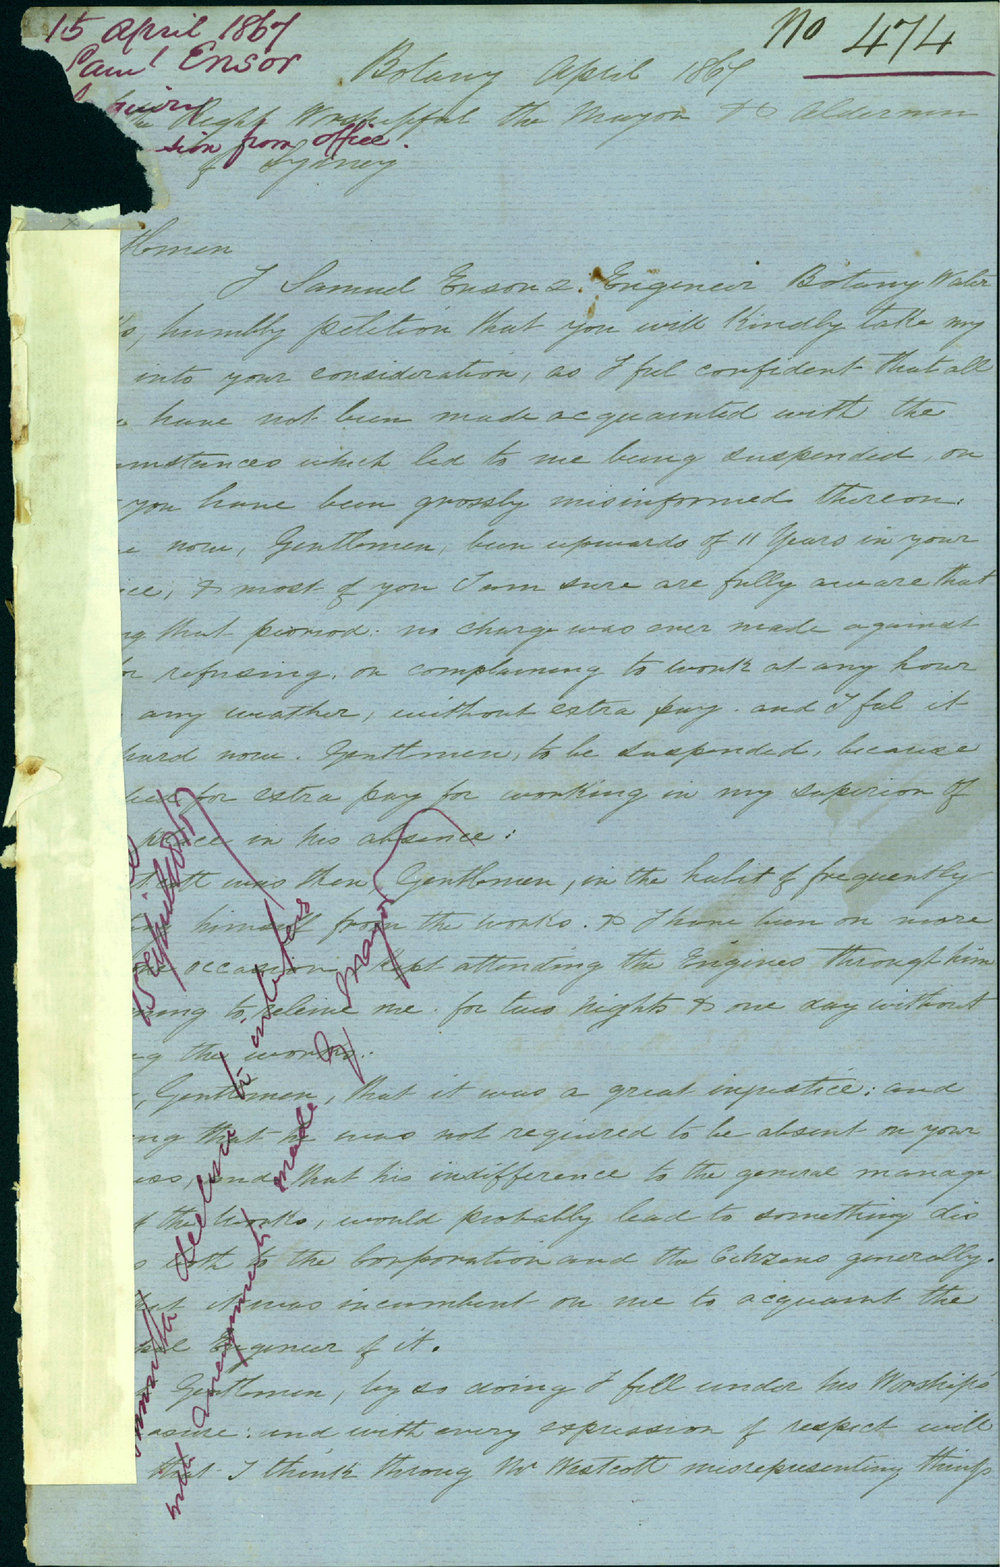 15 April 1867
No 474
Saml Ensor
Botany April 1867
the Right Worshipful the Mayor & Aldermen
sion from office.
of Sydney
tlemen
I Samuel Ensor 2. Engineer Botany Water
s, humbly petition that you will Kindly take my
into your consideration, as I feel confident that all
have not been made acquainted with the
umstances which led to me being suspended, or
you have been grossly misinformed thereon.
now, Gentlemen, been upwards of 11 Years in your
ice, & most of you I am sure are fully aware that
ng that peorod. no charge was ever made against
or refusing, or complaining to work at any hour
any weather, without extra pay. and I feel it
hard now. Gentlemen, to be suspended, because
for extra pay for working in my superior of
place in his absence:
was then, Gentlemen, in the habit of frequently
himself from the works. & I have been on more
occasion kept attending the Engines through him
ing to releive me. for two Nights & one day without
ng the works.
, Gentlemen, that it was a great injustice: and
ng that he was not required to be absent on your
ess, and that his indifference to the general manage
f the Works, would probably lead to something dis
s both to the Corporation and the Citizens generally.
it was incumbent on me to acquaint the
Engineer of it.
Gentlemen, by so doing I fell under his Worship's
asure: and with every expression of respect will
that I think throug Mr Westcott misrepresenting things
decline to interfere
with arrangements made by Mayor